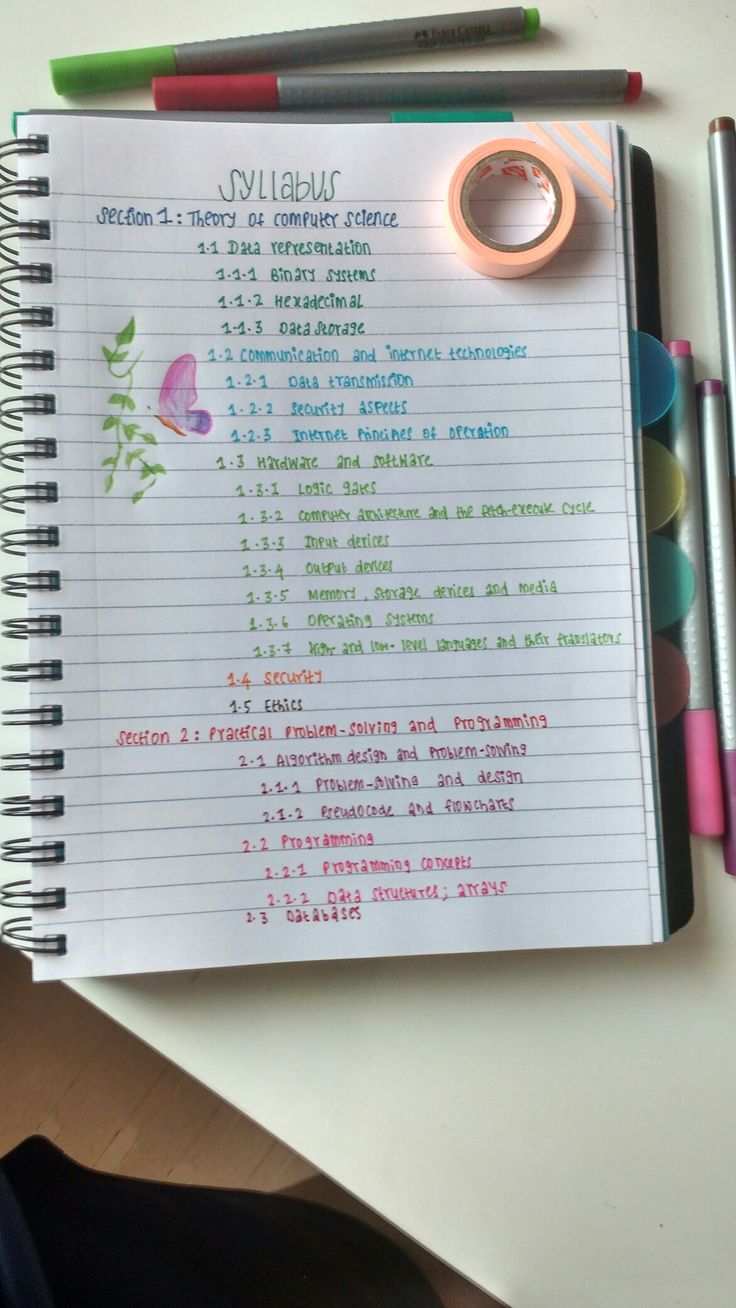 FABER-CASTELL
Syllabus
Section 1: Theory of computer science
1.1 Data representation
1.1.1 Binary systems
1.1.2 Hexadecimal
1.1.3 Data storage
1.2 Communication and internet technologies
1.2.1 Data transmission
1.2.2 Security aspects
1.2.3 Internet Principles of operation
1.3 Hardware and software
1.3.1 Logic gates
1.3.2 Computer architecture and the fetch-execute cycle
1.3.3 Input devices
1.3.4 Output devices
1.3.5 Memory, storage devices and media
1.3.6 Operating systems
1.3.7 High- and low-level languages and their translators
1.4 Security
1.5 Ethics
Section 2: Practical Problem-solving and Programming
2.1 Algorithm design and Problem-solving
2.1.1 Problem-solving and design
2.1.2 Pseudocode and flowcharts
2.2 Programming
2.2.1 Programming concepts
2.2.2 Data structures; arrays
2.3 Databases